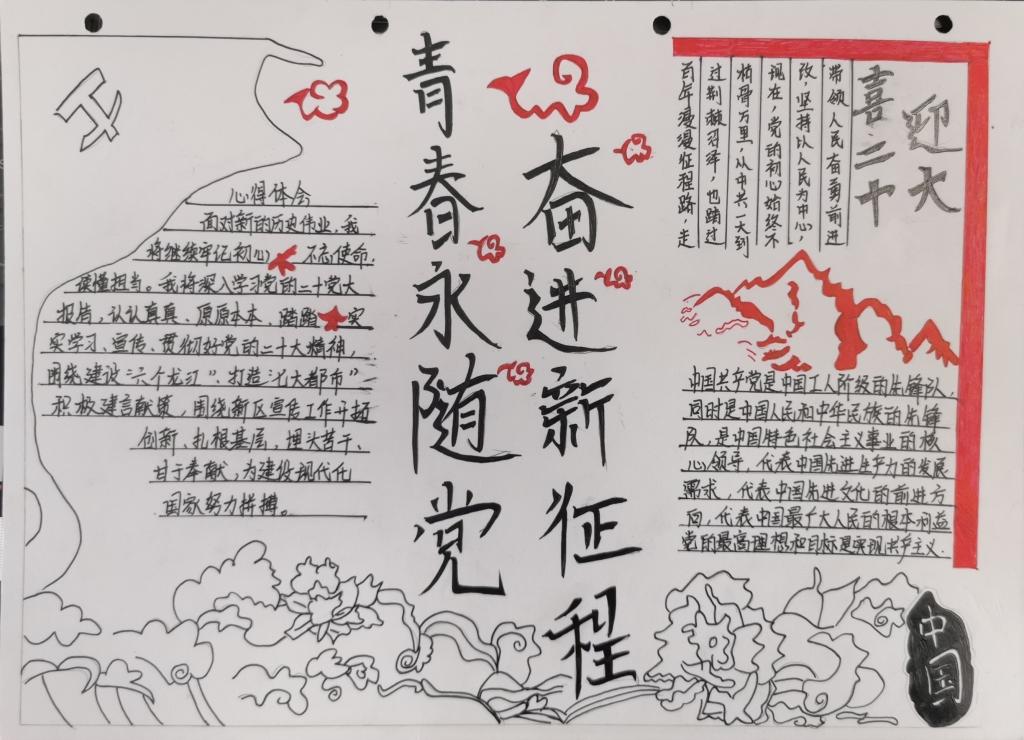 青春永随党
奋进新征程
心得体会
面对新的历史伟业，我
将继续牢记初心 不忘使命，
读懂担当。我将深入学习党的二十党大
报告，认认真真、原原本本、踏踏实
实学习、宣传、贯彻好党的二十大精神，
围绕建设“六个龙江”、打造“七大都市”
积极建言献策，围绕新区宣传工作开超
创新、扎根基层，埋头苦干、
甘于奉献，为建设现代化
国家努力拼搏。
迎大
喜二十
带领人民奋勇前进
改，坚持以人民为中心，
现在，党的初心始终不
枯骨万里，从中共一大到
过荆棘沼泽，也踏过
百年漫漫征程路，走
中国共产党是中国工人阶级的先锋队，
同时是中国人民和中华民族的先锋
队，是中国特色社会主义事业的核
心领导，代表中国先进生产力的发展
需求，代表中国先进文化的前进方
向，代表中国最广大人民的根本利益
党的最高理想和目标是实现共产主义．
中国